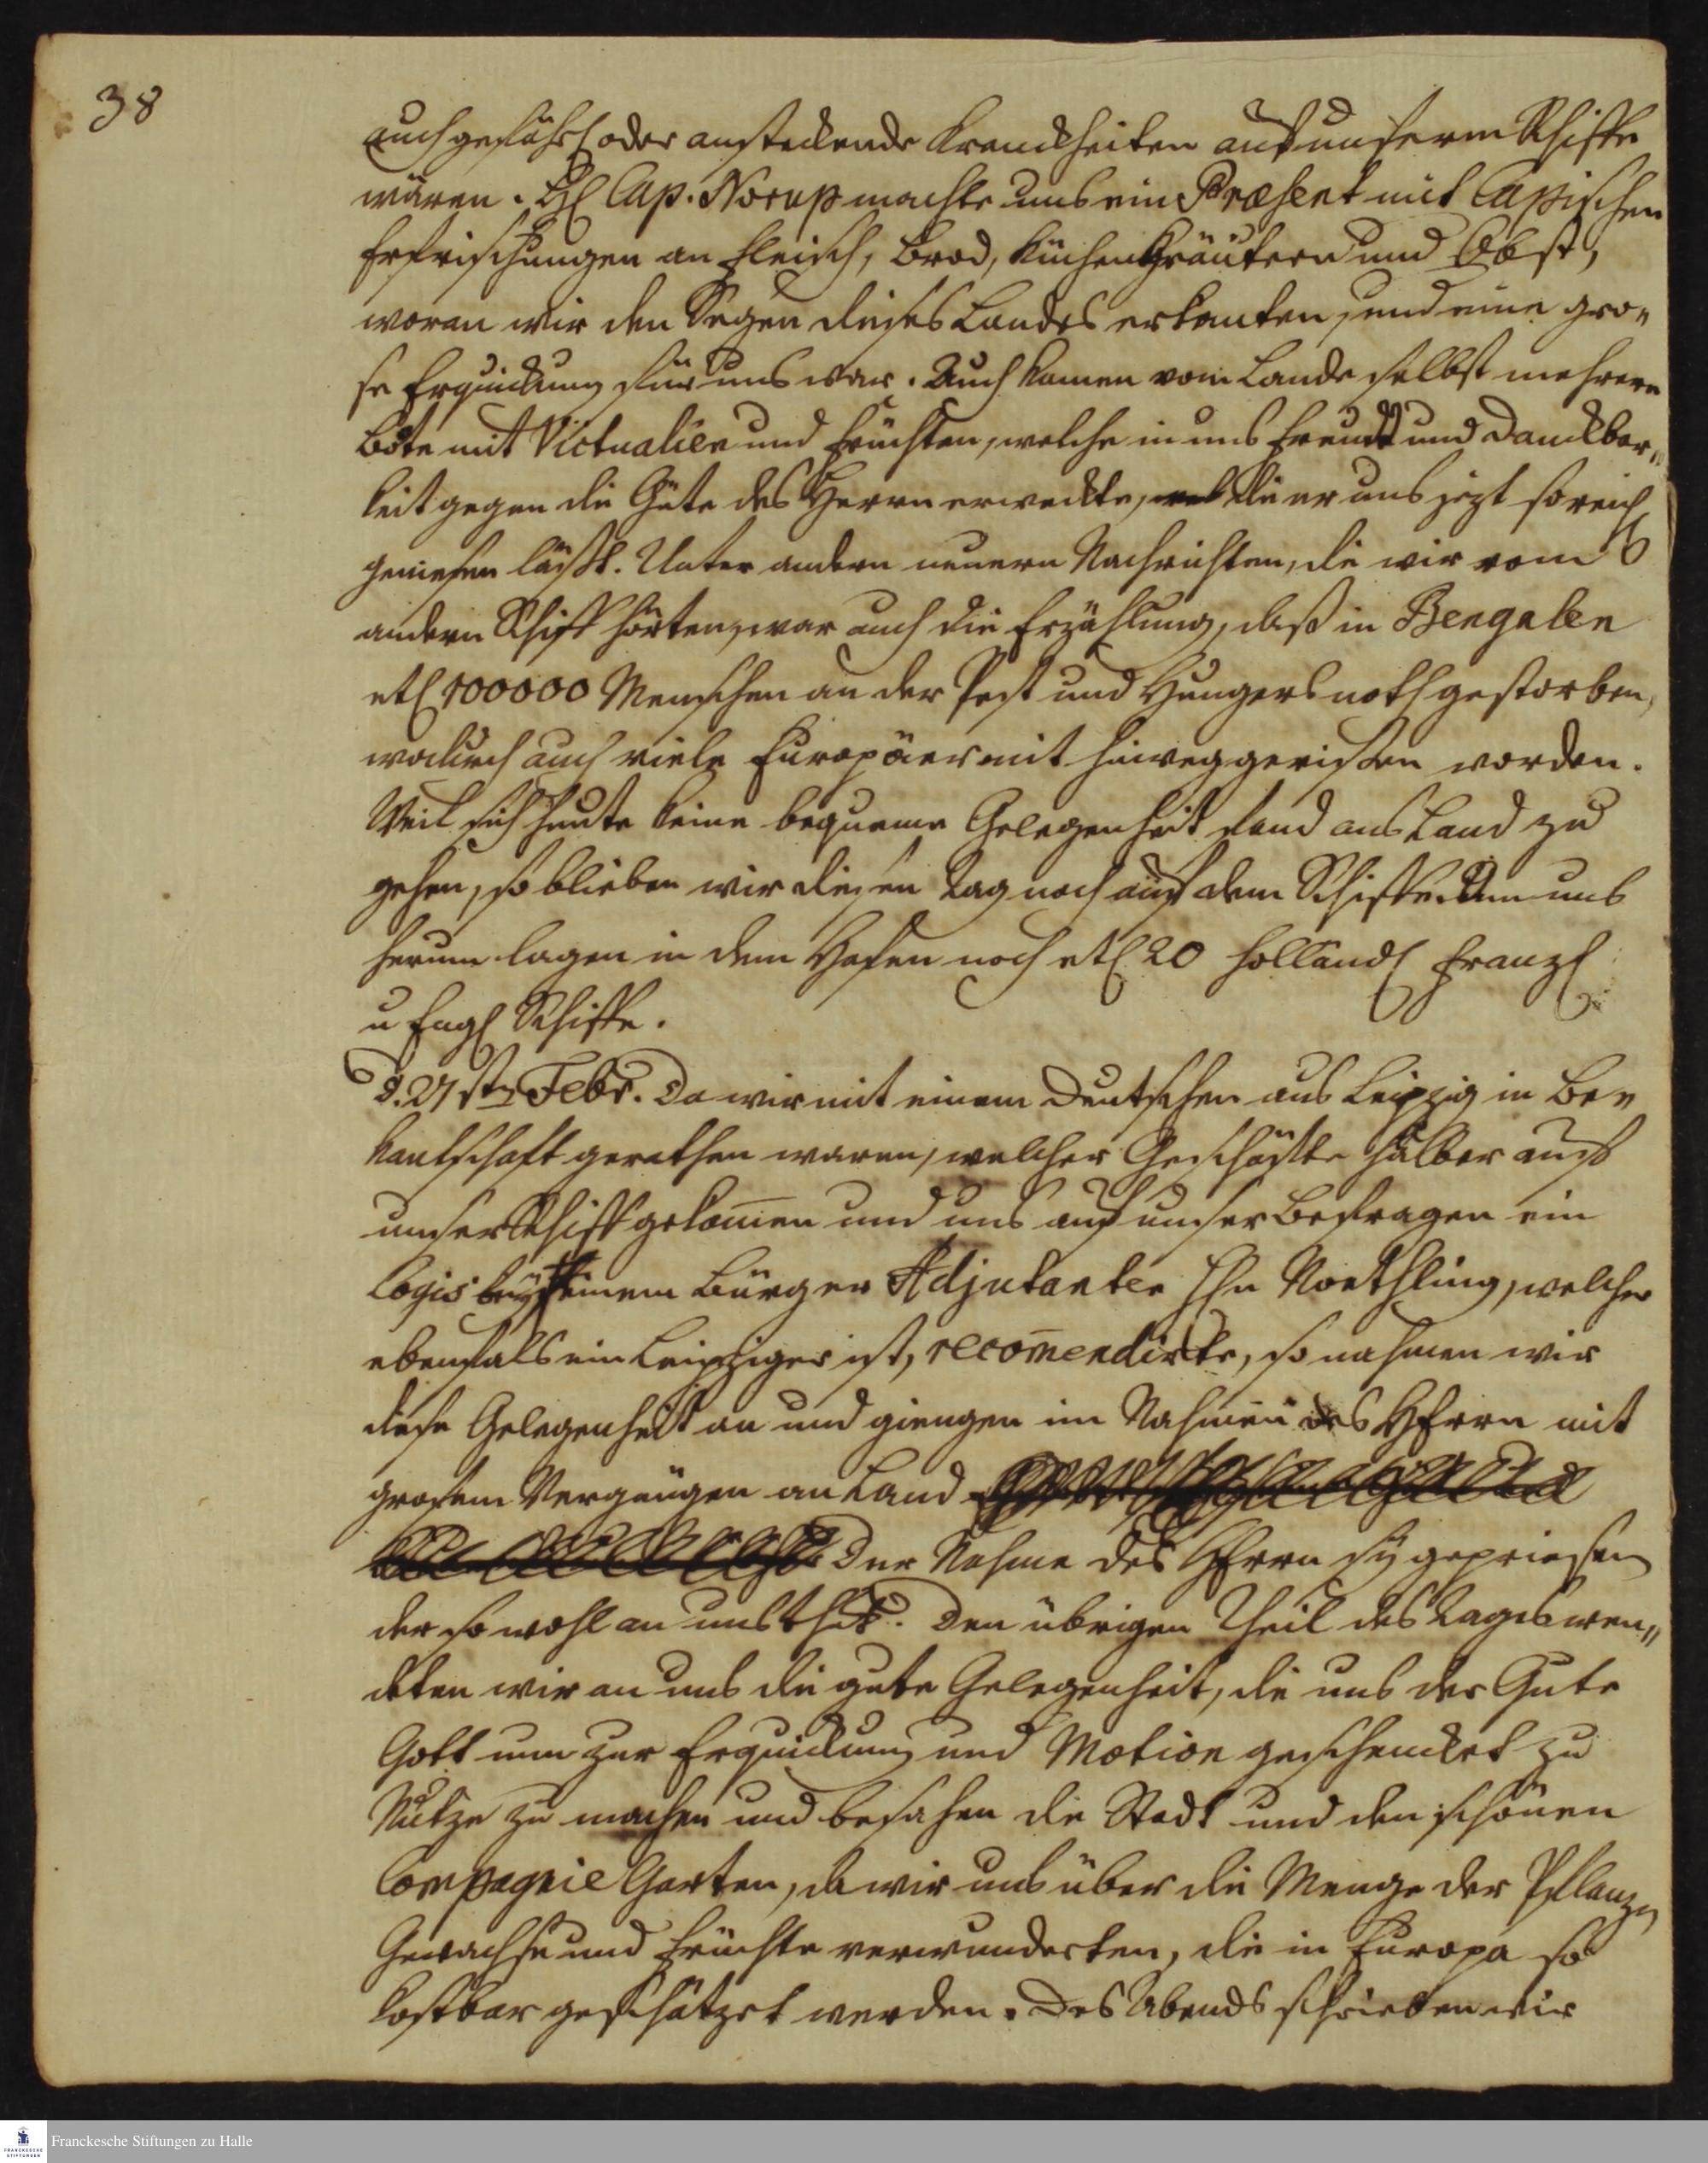 38
auch gefährl oder ansteckende Kranckheiten auf unserm Schiffe
wären. H Cap. Norup machte uns ein Præsent mit Capischen
Erfrischungen an Fleisch, Brod, Küchenkräutern und Obst,
woran wir den Segen dieses Landes erkanten, und eine gro„
se Erquickung für uns war. Auch kamen vom Lande selbst mehrere
Böte mit Victualien und Früchten, welche in uns Freude und Danckbar„
keit gegen die Güte des Herrn erweckte, die er uns jezt so reichl
geniesen läßt. Unter andern neuern Nachrichten, die wir vom
andern Schiff hörten, war auch die Erzählung, daß in Bengalen
etl 100000 Menschen an der Pest und Hungersnoth gestorben,
wodurch auch viele Europäer mit hinweggerissen worden.
Weil sich heute keine bequeme Gelegenheit fand ans Land zu
gehen, so blieben wir diesen Tag noch auf dem Schiffe. Um uns
herum lagen in dem Hafen noch etl 20 holländ französ
u Engl Schiffe.
D. 21ste Febr. Da wir mit einem Deutschen aus Leipzig in Be„
kantschaft gerathen waren, welcher Geschäfte halber auf
unser Schiff gekom̄en und uns auf unser Befragen ein
Logis bey einem Bürger Adjutanten Hn Noethling, welcher
ebenfals ein Leipziger ist, recom̄endirte, so nahmen wir
diese Gelegenheit an und giengen im Nahmen des HErrn mit
grosem Vergnügen an Land
Der Nahme des HErrn sey gepriesen
der so wohl an uns thut. Den übrigen Theil des Tages wen„
deten wir an uns die gute Gelegenheit, die uns der Gute
Gott nun zur Erquickung und Motion geschencket zu
Nutze zu machen und besahen die Stadt und den schönen
Compagnie Garten, da wir uns über die Menge der Pflanzen
Gewächse und Früchte verwunderten, die in Europa so
kostbar geschätzet werden. Des Abends schrieben wir
FRANCKESCHE STIFTUNGEN
Franckesche Stiftungen zu Halle